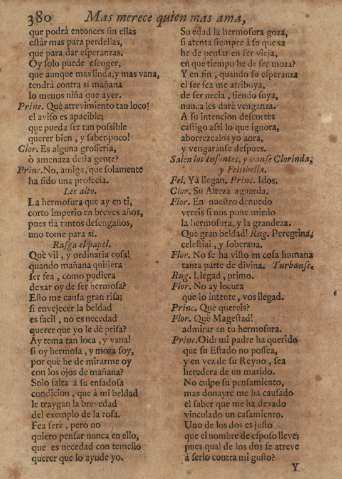 380 Mas merece quien mas ama,
que podrà entonces sin ellas
estàr mas para perdellas,
que para dar esperanzas.
Oy solo puede escoger,
que aunque mas linda, y mas vana,
tendrà contra si mañana
lo menos niña que ayer.
Princ. Què atrevimiento tan loco!
el aviso es apacible;
que pueda ser tan possible
querer bien, y saber poco!
Clor. Es alguna grosseria,
ò amenaza desta gente?
Princ. No, amiga, que solamente
ha sido una profecia.
Lee alto.
La hermosura que ay en ti,
corto imperio en breves años,
pues tia tantos desengaños,
uno tome para si.
Rasga el papel.
Què vil, y ordinaria cosa!
quando mañana quisiera
ser fea, como pudiera
dexar oy de ser hermosa?
Esto me causa gran risa;
si envejecer la beldad
es facil, no es necedad
querer que yo le dè prisa?
Ay tema tan loca, y vana!
si oy hermosa, y moza soy,
por què he de mirarme oy
con los ojos de mañana?
Solo falta à su enfadosa
condicion, que à mi beldad
le traygan la brevedad
del exemplo de la rosa.
Fea serè, pero no
quiero pensar nunca en ello,
que es necedad con temello
querer que lo ayude yo.
Su edad la hermosura goza,
si atenta siempre à lo que xa
he de pensar en ser vieja,
en que tiempo he de ser moza?
Y en fin, quando su esperanza
el ser fea me atribuya,
de ser necia, siendo suya,
nunca les darè venganza.
A su intencion descortès
castigo assi lo que ignora,
aborrezcalos yo aora,
y vengaranse despues.
Salen los Infantes, y vanse Clorinda,
y Felisbella.
Fel. Yà llegan, Princ. Idos,
Clor. Su Alteza aguarda.
Flor. En nuestro denuedo
vereis si nos pone miedo
la hermosura, y la grandeza.
Què gran beldad! Rug. Peregrina,
celestial, y soberana.
Flor. No se ha visto en cosa humana
tanta parte de divina. Turbanse.
Rug. Llegad, primo.
Flor. No ay locura
que lo intente, vos llegad.
Princ. Què quereis?
Flor. Què Magestad!
admirar en tu hermosura.
Princ. Oid: mi padre ha querido
que su Estado no possea,
y en vez de su Reyno, sea
heredera de un marido.
No culpo su pensamiento,
mas donayre me ha causado
el saber que me ha dexado
vinculado un casamiento.
Uno de los dos es justo
que el nombre de esposo lleve;
pues qual de los dos se atreve
à serlo contra mi gusto?
Y